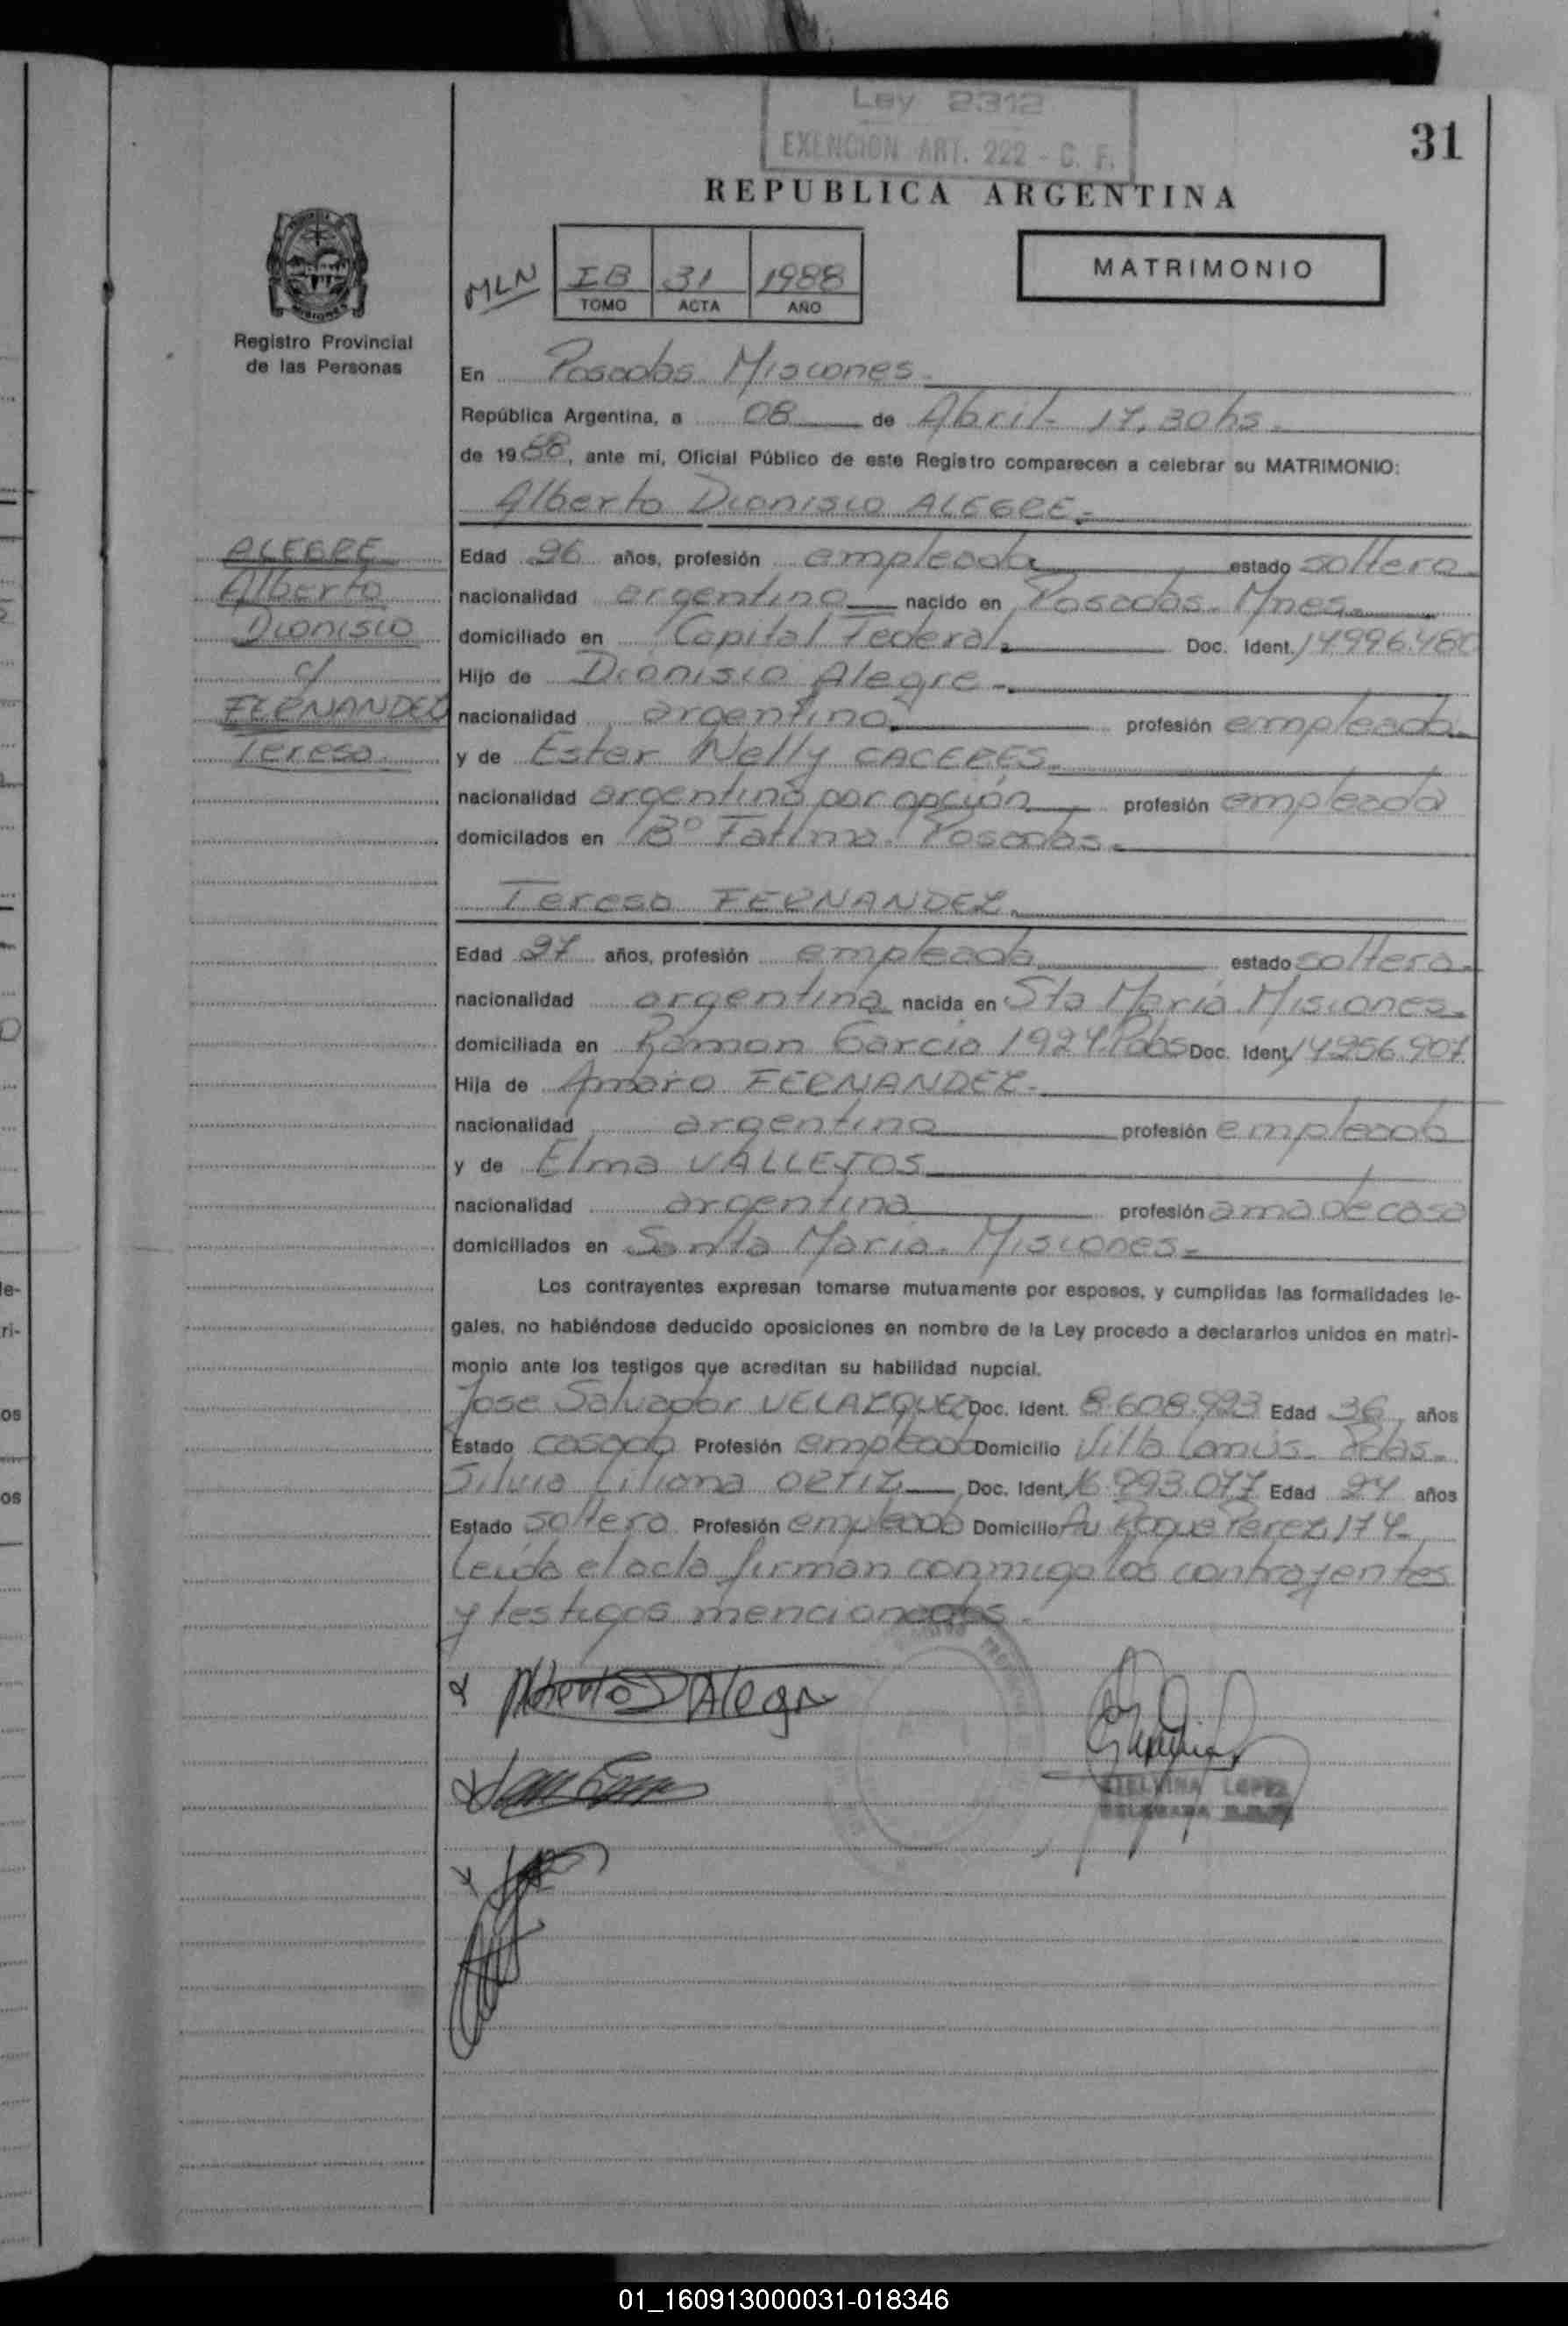 Ley 2312
EXENCION ART. 222 - C. F.
31
REPUBLICA ARGENTINA
MLN
IB 31 1988
TOMO ACTA AÑO
MATRIMONIO
Registro Provincial
de las Personas
En Posadas Misiones
República Argentina, a 08 de Abril - 17,30 hs.
de 1988, ante mi, Oficial Público de este Registro comparecen a celebrar su MATRIMONIO:
Alberto Dionisio ALEGRE.
ALEGRE
Alberto
Dionisio
c/
FERNANDEZ
Teresa
Edad 26 años, profesión empleado estado soltero
nacionalidad argentino nacido en Posadas. Mnes.
domiciliado en Capital Federal. Doc. Ident. 14.996.480
Hijo de Dionisio Alegre.
nacionalidad argentino profesión empleado.
y de Ester Nelly CACERES.
nacionalidad argentina por opción profesión empleada
domicilados en Bº Fatima. Posadas.
Teresa FERNANDEZ.
Edad 27 años, profesión empleada estado soltera.
nacionalidad argentina nacida en Sta María. Misiones.
domiciliada en Ramon Garcia 1924. Pdas Doc. Ident. 14.256.907
Hija de Amaro FERNANDEZ.
nacionalidad argentino profesión empleado
y de Elma VALLEJOS
nacionalidad argentina profesión ama de casa
domiciliados en Santa Maria. Misiones.
Los contrayentes expresan tomarse mutuamente por esposos, y cumplidas las formalidades le-
gales, no habiéndose deducido oposiciones en nombre de la Ley procedo a declararlos unidos en matri-
monio ante los testigos que acreditan su habilidad nupcial.
Jose Salvador VELAZQUEZ Doc. Ident. 8.608.923 Edad 36 años
Estado casado Profesión empleado Domicilio Villa Lanús. Pdas.
Silvia Liliana ORTIZ Doc. Ident. 16.993.077 Edad 24 años
Estado soltera Profesión empleada Domicilio Av Roque Perez 174
Leída el acta firman conmigo los contrayentes
y testigos mencionados.
Alberto D Alegre
ETELVINA LOPEZ
DELEGADA
01_160913000031-018346